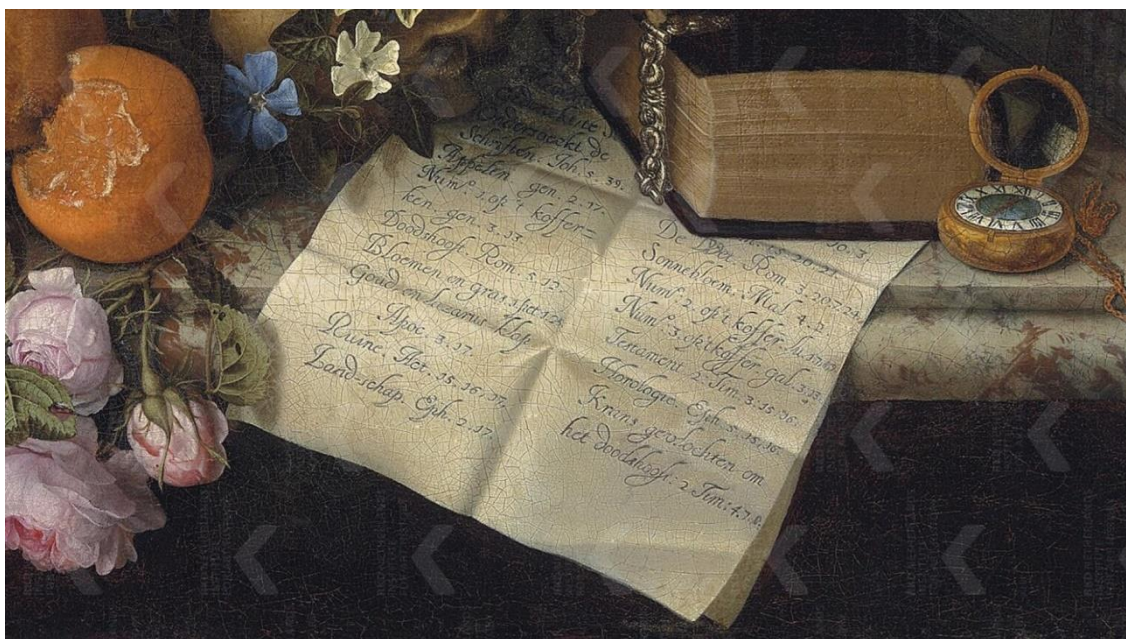 Ondersoeckt de
Schriften. Joh. 5. 39.
Appelen gen. 2. 17.
Num.º 1. op 't koffer=
ken. gen. 3. 13.
Doodshooft. Rom. 5. 12.
Bloemen en gras
Goud en lazarus klap
Apoc. 3. 17.
Ruine. Act. 15. 16, 17.
Land-schap. Eph. 2. 17.
De Rom. 3. 20. 7. 24.
Sonnebloem. Mal. 4. 2.
Num.º 2. op 't koffer.
Num.º 3. op 't koffer. gal. 3. 13.
Testament. 2. Tim. 3. 15. 16.
Horologie. Eph. 5. 15. 16.
Krans gevlochten om
het doodshooft: 2 Tim: 4. 7. 8.
XII